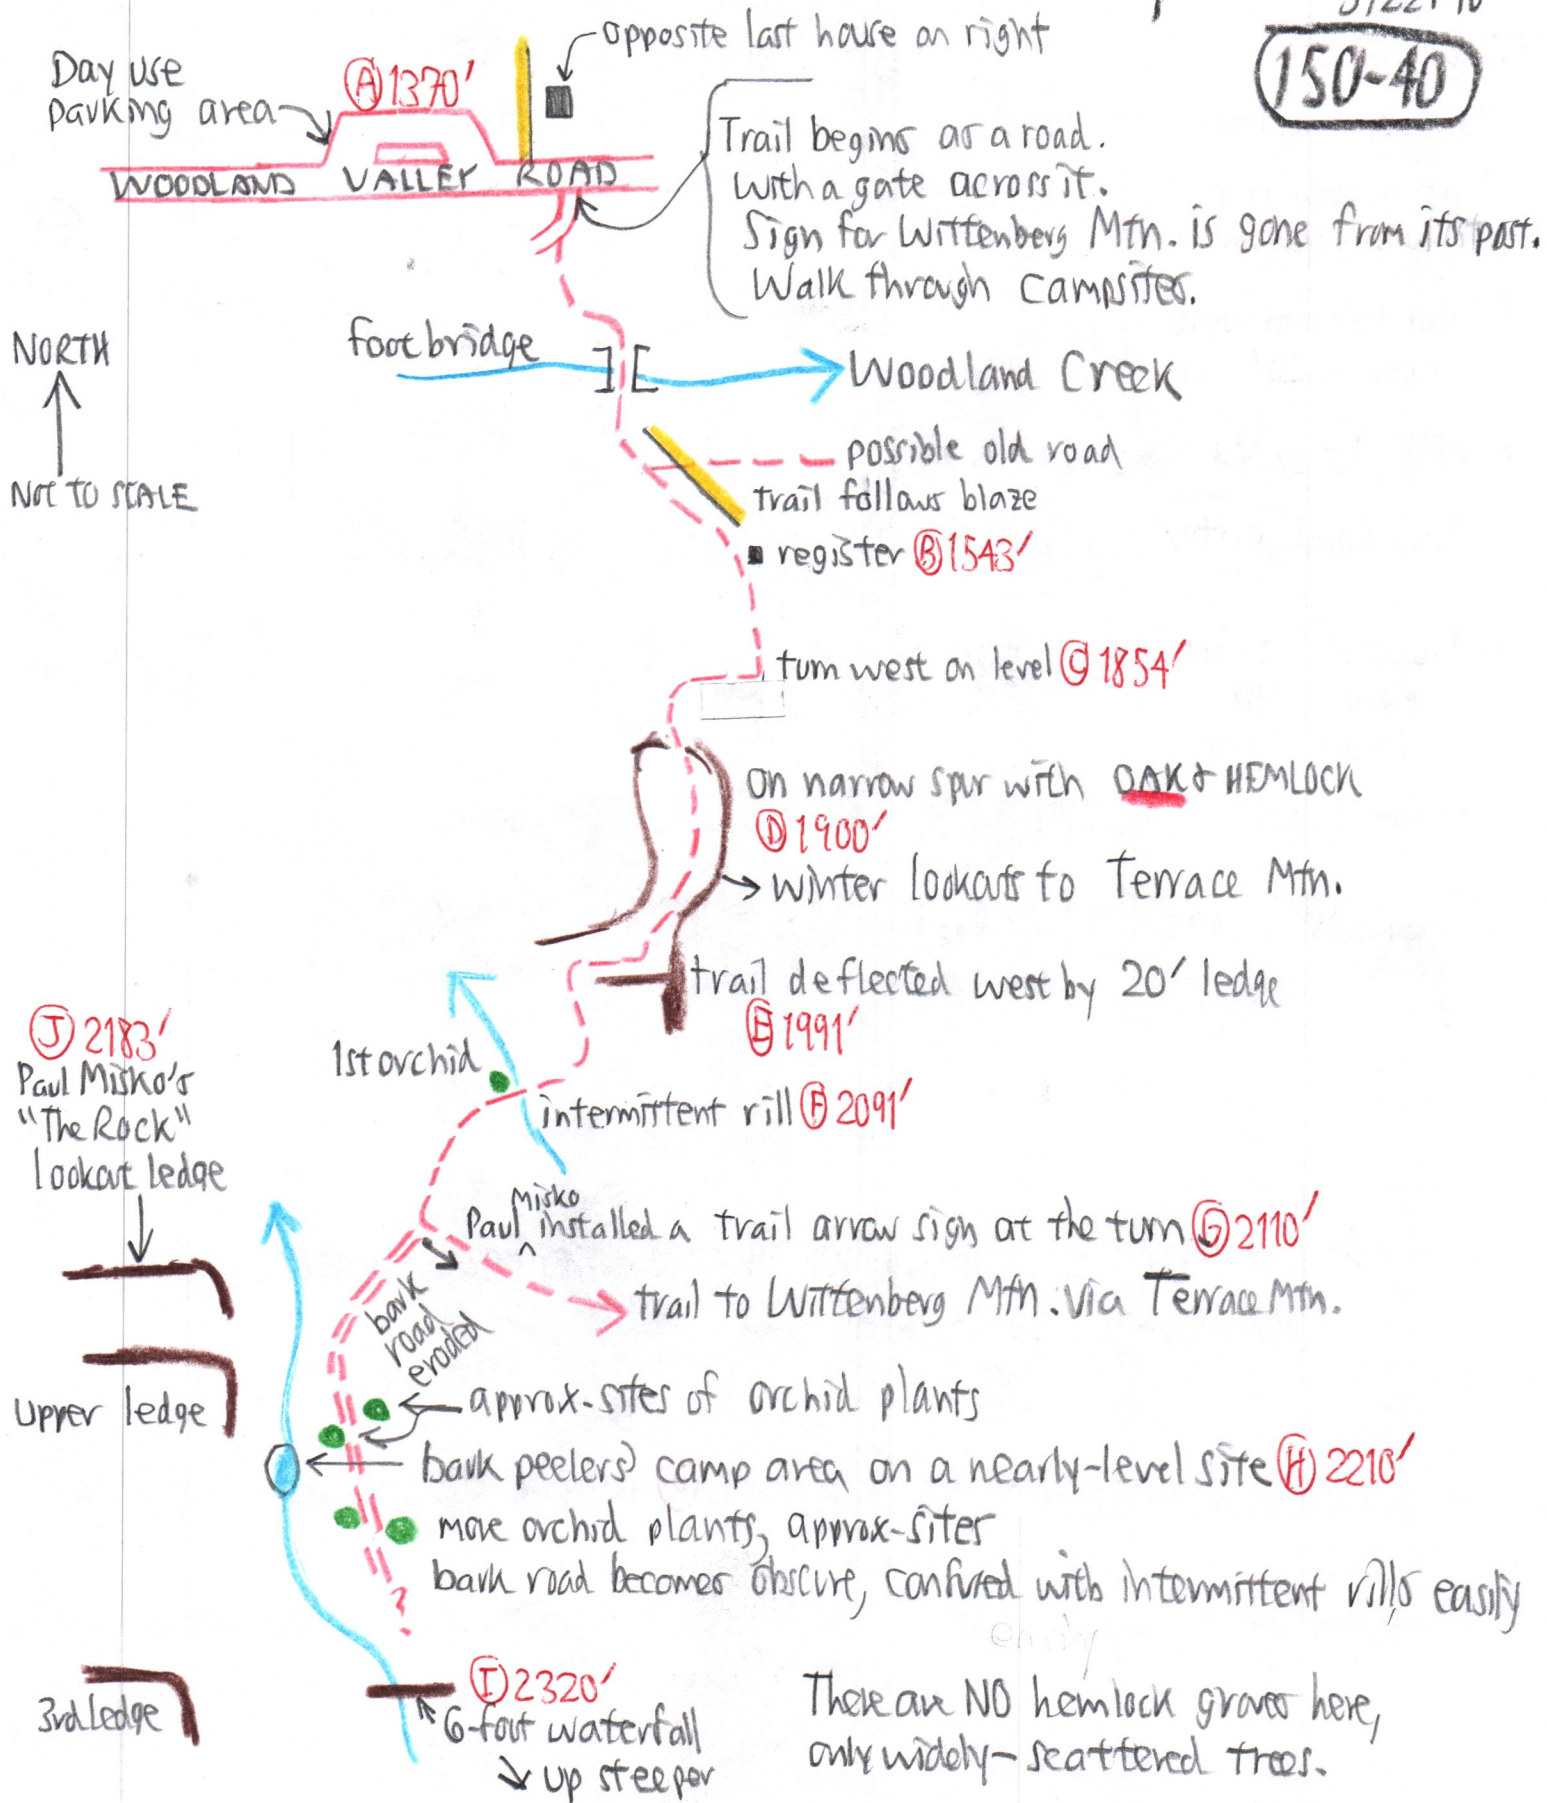 150-40
opposite last house on right
Day use
parking area
A 1370'
WOODLAND VALLEY ROAD
Trail begins as a road.
with a gate across it.
Sign for Wittenberg Mtn. is gone from its post.
Walk through campsites.
NORTH
Not TO SCALE
foot bridge
Woodland Creek
possible old road
trail follows blaze
register B 1543'
turn west on level C 1854'
on narrow spur with OAK & HEMLOCK
D 1900'
winter lookouts to Terrace Mtn.
trail deflected west by 20' ledge
E 1991'
J 2183'
Paul Misko's
"The Rock"
lookout ledge
1st orchid
intermittent rill F 2091'
Paul Misko installed a trail arrow sign at the turn G 2110'
trail to Wittenberg Mtn. via Terrace Mtn.
bark
road
eroded
upper ledge
approx. sites of orchid plants
bark peelers' camp area on a nearly-level site H 2210'
more orchid plants, approx-sites
bark road becomes obscure, confused with intermittent rills easily
?
3rd Ledge
I 2320'
6-foot waterfall
up steeper
There are NO hemlock groves here,
only widely-scattered trees.